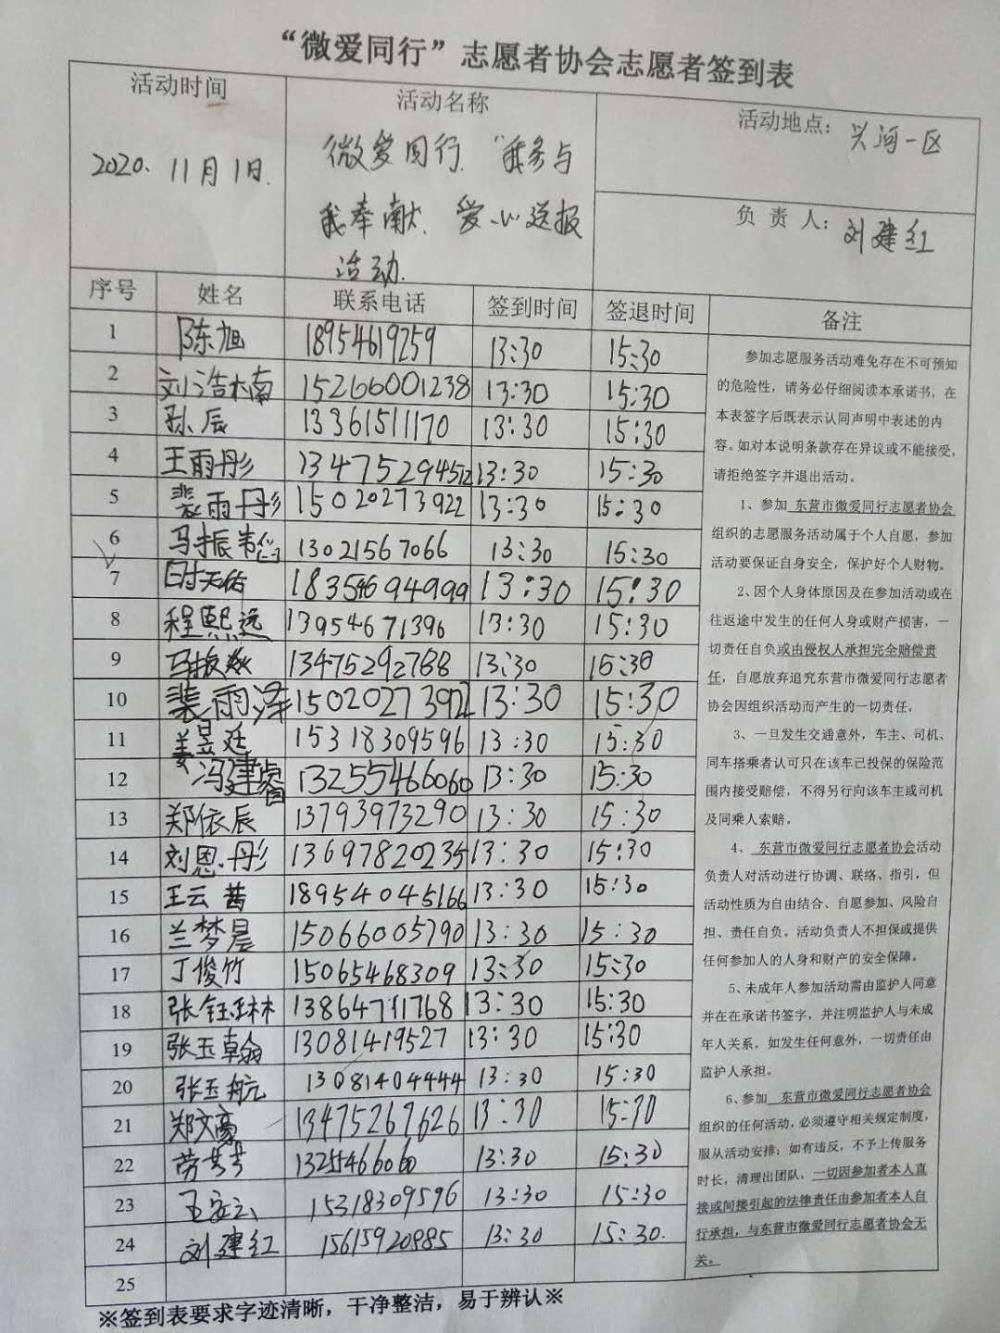 “微爱同行”志愿者协会志愿者签到表
活动时间
2020.11月1日.
活动名称
微爱同行.“我参与
我奉献.爱心送报
活动.
活动地点：兴河一区
负 责 人：刘建红
序号 姓名 联系电话 签到时间 签退时间 备注
1 陈旭 18954619259 13:30 15:30
2 刘浩楠 15266001238 13:30 15:30
3 孙辰 13361511170 13:30 15:30
4 王雨彤 13475294512 13:30 15:30
5 裴雨彤 15020273922 13:30 15:30
6 马振韦 13021567066 13:30 15:30
7 时天佑 18354694999 13:30 15:30
8 程熙远 13954671396 13:30 15:30
9 13475292768 13:30 15:30
10 裴雨泽 15020273922 13:30 15:30
11 姜昱廷 15318309596 13:30 15:30
12 冯建睿 13255466060 13:30 15:30
13 郑依辰 13793973290 13:30 15:30
14 刘恩彤 13697820235 13:30 15:30
15 王云茜 18954045166 13:30 15:30
16 兰梦晨 15066005790 13:30 15:30
17 丁俊竹 15065468309 13:30 15:30
18 张钰琳 13864711768 13:30 15:30
19 张玉翰 13081419527 13:30 15:30
20 张玉航 13081404444 13:30 15:30
21 郑文豪 13475267626 13:30 15:30
22 劳芳芳 13255466060 13:30 15:30
23 15318309596 13:30 15:30
24 刘建红 15615920885 13:30 15:30.
25
参加志愿服务活动难免存在不可预知
的危险性，请务必仔细阅读本承诺书，在
本表签字后既表示认同声明中表述的内
容。如对本说明条款存在异议或不能接受，
请拒绝签字并退出活动。
1、参加 东营市微爱同行志愿者协会
组织的志愿服务活动属于个人自愿，参加
活动要保证自身安全，保护好个人财物。
2、因个人身体原因及在参加活动或在
往返途中发生的任何人身或财产损害，一
切责任自负或由侵权人承担完全赔偿责
任，自愿放弃追究东营市微爱同行志愿者
协会因组织活动而产生的一切责任，
3、一旦发生交通意外，车主、司机、
同车搭乘者认可只在该车已投保的保险范
围内接受赔偿，不得另行向该车主或司机
及同乘人索赔。
4、 东营市微爱同行志愿者协会活动
负责人对活动进行协调、联络、指引，但
活动性质为自由结合、自愿参加、风险自
担、责任自负。活动负责人不担保或提供
任何参加人的人身和财产的安全保障。
5、未成年人参加活动需由监护人同意
并在在承诺书签字，并注明监护人与未成
年人关系，如发生任何意外，一切责任由
监护人承担。
6、参加 东营市微爱同行志愿者协会
组织的任何活动，必须遵守相关规定制度，
服从活动安排；如有违反，不予上传服务
时长，清理出团队，一切因参加者本人直
接或间接引起的法律责任由参加者本人自
行承担，与东营市微爱同行志愿者协会无
关。
※签到表要求字迹清晰，干净整洁，易于辨认※